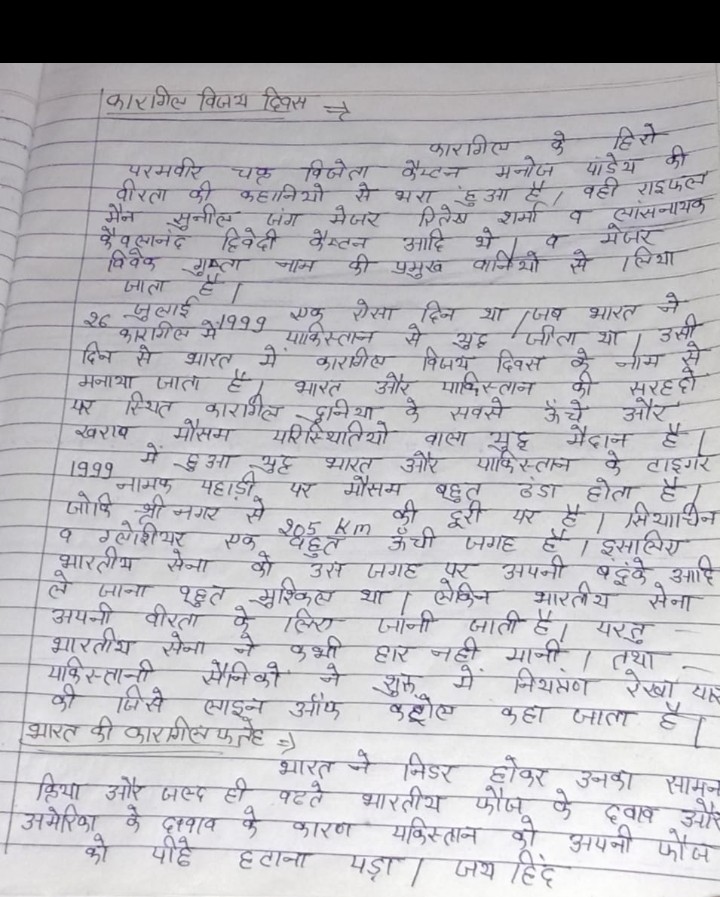 कारगिल विजय दिवस ⇒
कारगिल के हिरो
परमवीर चक्र विजेता कैप्टन मनोज पांडेय की
वीरता की कहानियो से भरा हुआ है। वही राइफल
मैन सुनील जंग मेजर रितेश शर्मा व लांसनायक
कैवलानंद द्विवेदी कैप्टन आदि थे। व मेजर
विवेक गुप्ता नाम की प्रमुख से लिया
जाता है।
26 जुलाई 1999 एक ऐसा दिन था जब भारत ने
कारगिल में पाकिस्तान से युद्ध जीता था। उसी
दिन से भारत में कारगिल विजय दिवस के नाम से
मनाया जाता है। भारत और पाकिस्तान की सरहदो
पर स्थित कारगिल दुनिया के सबसे ऊँचे और
खराब मौसम परिस्थितियो वाला युद्ध मैदान है।
1999 में हुआ युद्ध भारत और पाकिस्तान के टाइगर
नामक पहाड़ी पर मौसम बहुत ठंडा होता है।
जोकि श्री नगर से 205 Km की दूरी पर है। सियाचिन
व ग्लेशियर एक बहुत ऊँची जगह है। इसलिए
भारतीय सेना को उस जगह पर अपनी बंदुके आदि
ले जाना बहुत मुश्किल था। लेकिन भारतीय सेना
अपनी वीरता के लिए जानी जाती है। परतु
भारतीय सेना ने कभी हार नही मानी। तथा
पाकिस्तानी सैनिको ने शुरू में नियंत्रण रेखा पार
की जिसे लाइन ऑफ कंट्रोल कहा जाता है।
भारत की कारगिल फतेह ⇒
भारत ने निडर होकर उनका सामन
किया और जल्द ही बढते भारतीय फौज के दबाव और
अमेरिका के दबाव के कारण पाकिस्तान को अपनी फौज
को पीछे हटाना पड़ा। जय हिंद